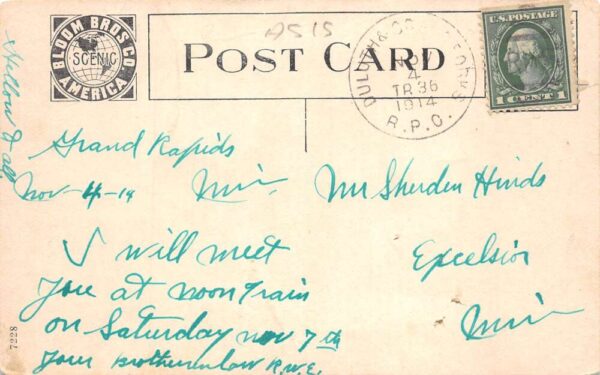 BLOOM BROS CO
SCENIC
AMERICA
POST CARD
A515
DULUTH & FORKS
NOV
4
TR 36
1914
R.P.O.
U.S. POSTAGE
1 CENT 1
Hellow to all
Grand Rapids
Nov 4-14 Min
I will meet
you at noon Train
on Saturday nov 7th
your brotherinlaw R.W.E.
Mr Sherden Hinds
Excelsior
Min
7228